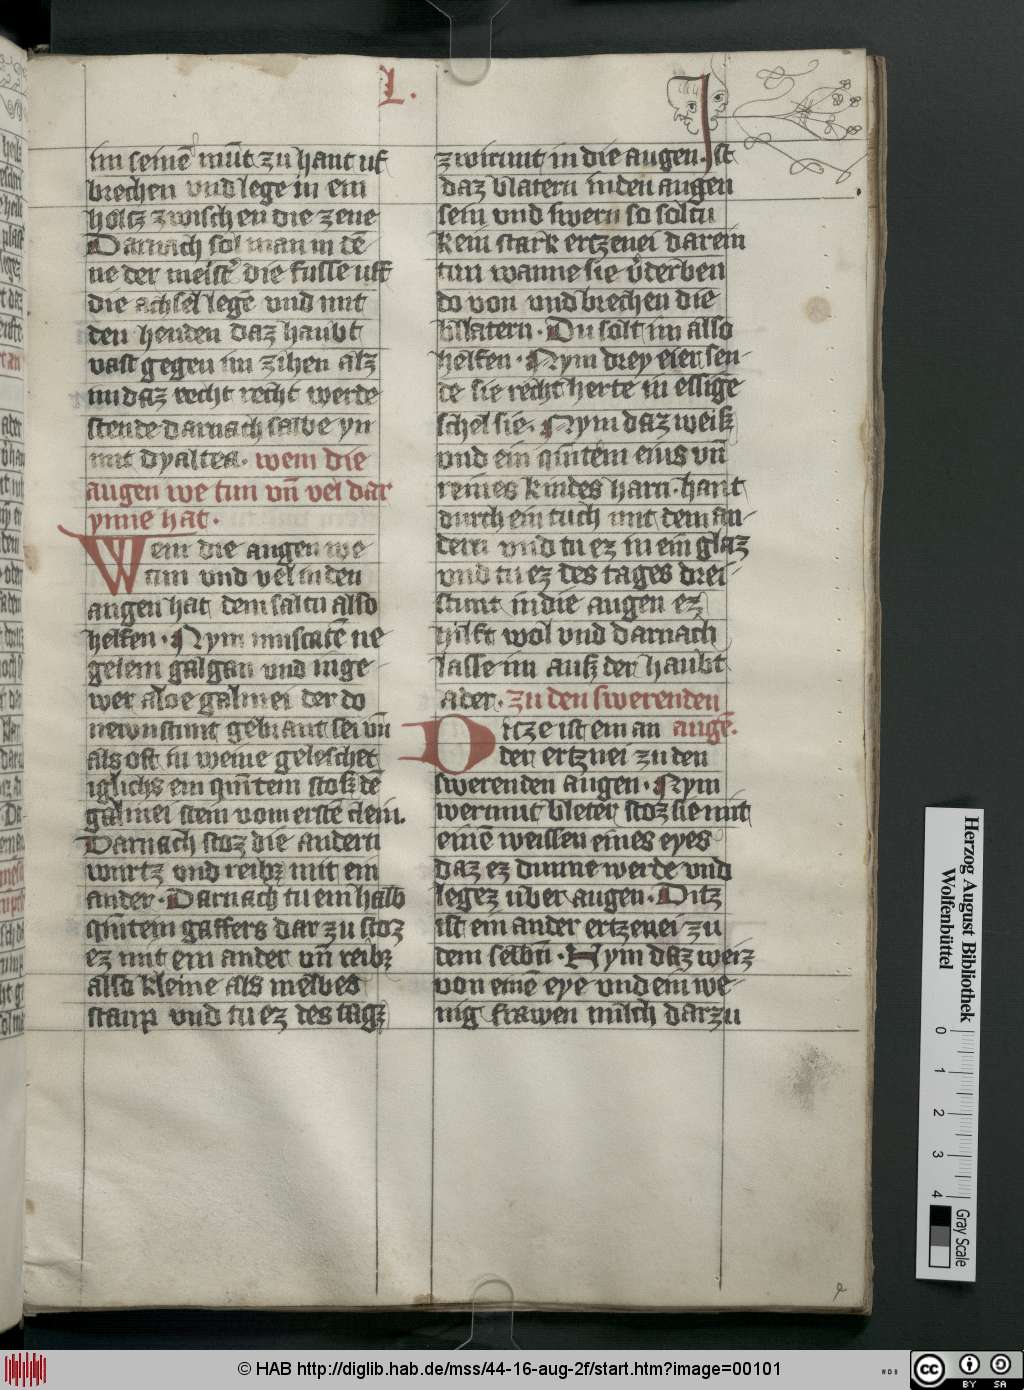 L.
im seinē mūt zu hant uf
brechen vnd lege in ein
holcz zwischen die zene
Darnach sol man in dē
ne der meistˀ die fusse uff
die achsel legē vnd mit
den henden daz haubt
vast gegen im zihen alz
im daz recht recht werde
stende darnach salbe yn
mit dyaltea. wem die
augen we tun vn̄ vel dar
ynne hat.
Wem die augen we
tun vnd vel in den
augen hat dem saltu also
helfen. Nym muscatē ne
gelein galgan vnd inge
wer aloe galmei der do
newnstunt gebrant sei vn̄
als oft in weine geleschet
iglichs ein qūitein stoß dē
galmei stein vom erstē clein.
Darnach stoz die andern
wurtz vnd reibz mit ein
ander. Darnach tu ein halb
qūitein gaffers dar zu stoz
ez mit ein ander vn̄ reibz
also kleine als melbes
staup vnd tu ez des tagz
zwirunt in die augen. Ist
daz blatern in den augen
sein vnd swern so soltu
kein stark ertzenei darein
tun wanne sie v̓derben
do von vnd brechen die
bllatern. Du solt im also
helfen. Nym drey eier sen
de sie recht herte in essige
schel sie. Nym daz weiß
vnd ein quitein eins vn̄
reines kindes harn. hant
durch ein tuch mit dem an
dern vnd tu ez in ein glaz
vnd tu ez des tages drei
stunt in die augen ez
hilft wol vnd darnach
lasse im auß der haubt
ader. zu den swerenden
augē.
Ditze ist ein an
der ertznei zu den
swerenden augen. Nym
wermut bleter stoz sie mit
einē weissen eines eyes
daz ez dunne werde vnd
legez über augen. Ditz
ist ein ander ertzenei zu
dem selbn̄. Nym daz weiz
von einē eye vnd ein we
nig frawen milch darzu
Herzog August Bibliothek
Wolfenbüttel
0 1 2 3 4
Gray Scale
© HAB http://diglib.hab.de/mss/44-16-aug-2f/start.htm?image=00101
cc BY SA